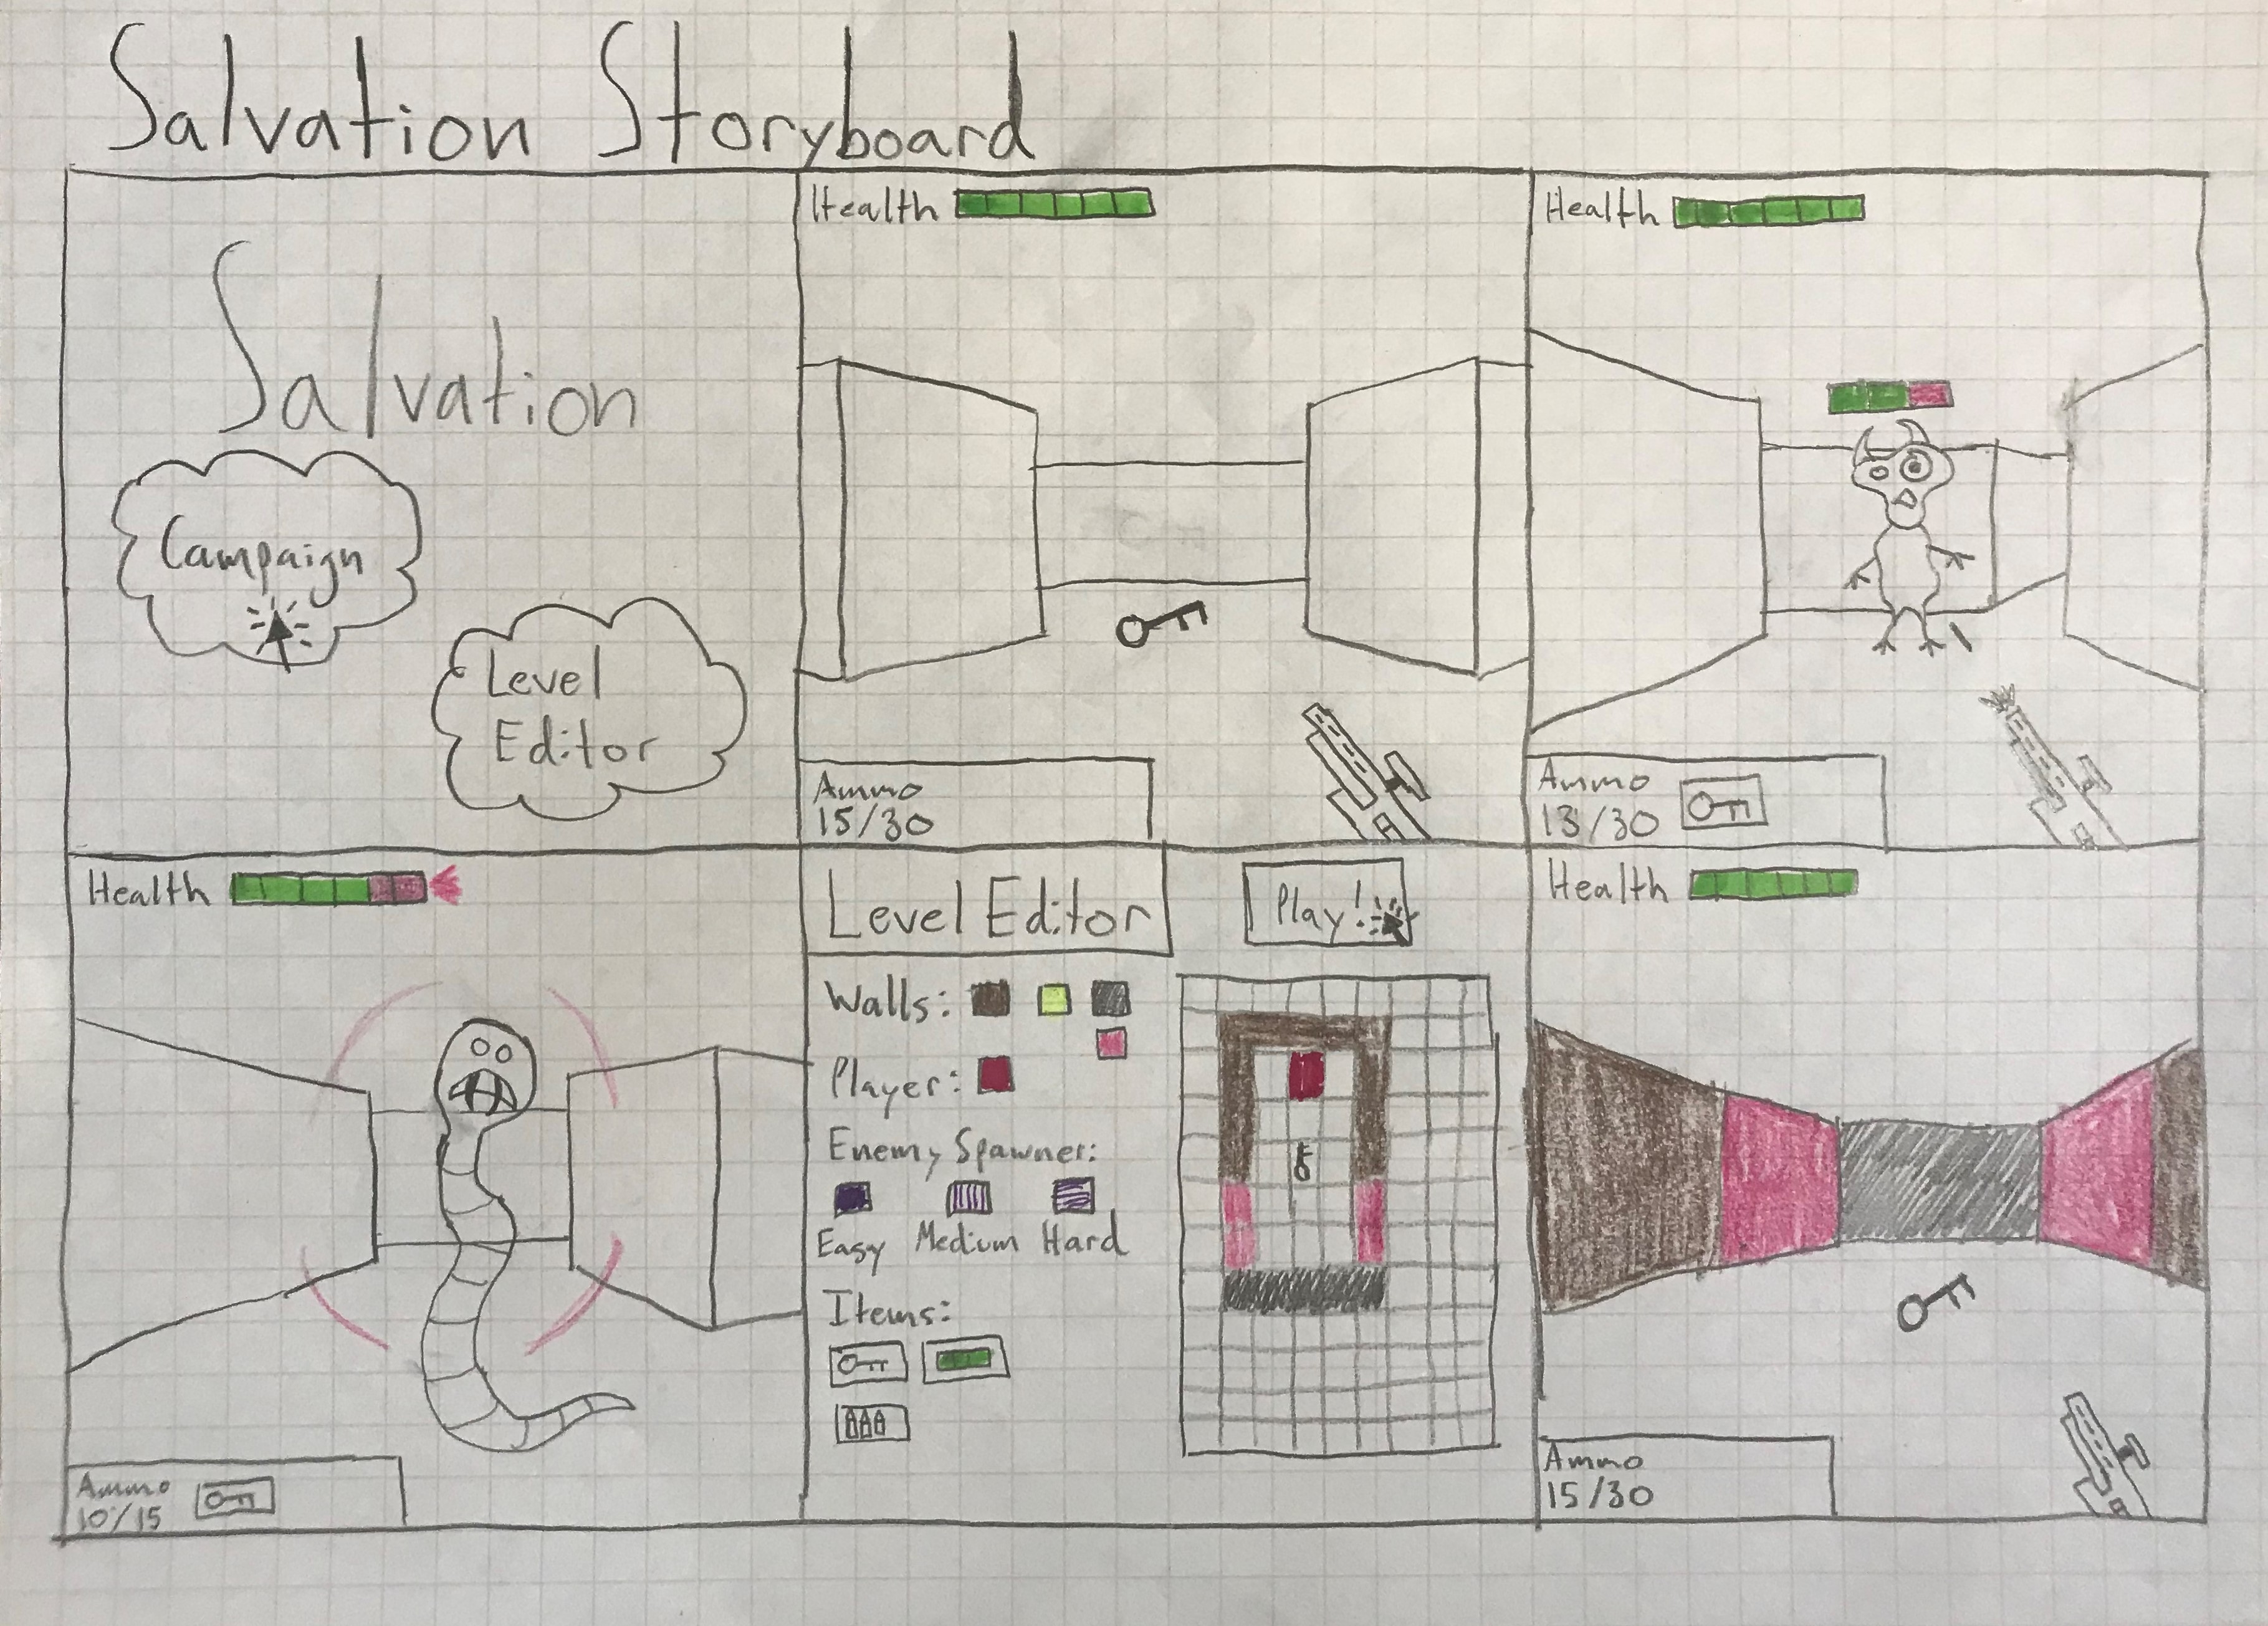 Salvation Storyboard
Salvation
Campaign
Level
Editor
Health
Ammo
15/30
Health
Ammo
13/30
Health
Ammo
10/15
Level Editor
Play!
Walls:
Player:
Enemy Spawner:
Easy Medium Hard
Items:
Health
Ammo
15/30